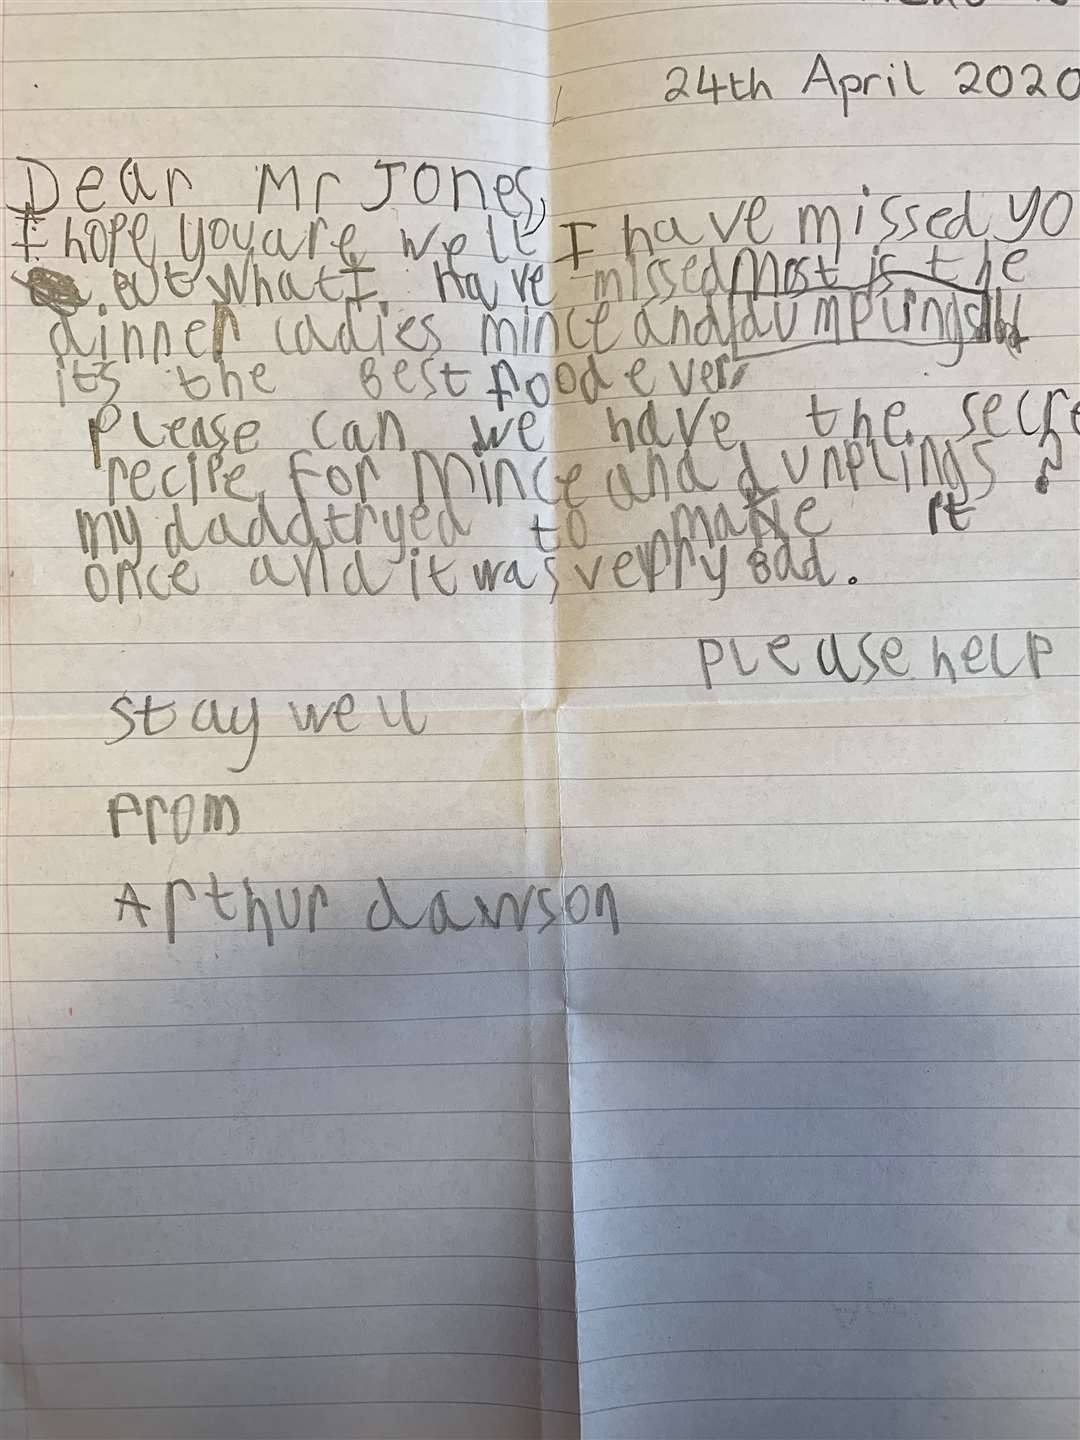 24th April 2020
Dear Mr Jones,
I hope you are well I have missed yo
. But what I have missed most is the
dinner ladies mince and dumplings
its the Best food ever
please can we have the secre
recipe for mince and dunplings ?
my dadd tryed to make it
once and it was verry Bad.
please help
Stay well
From
Arthur dawson